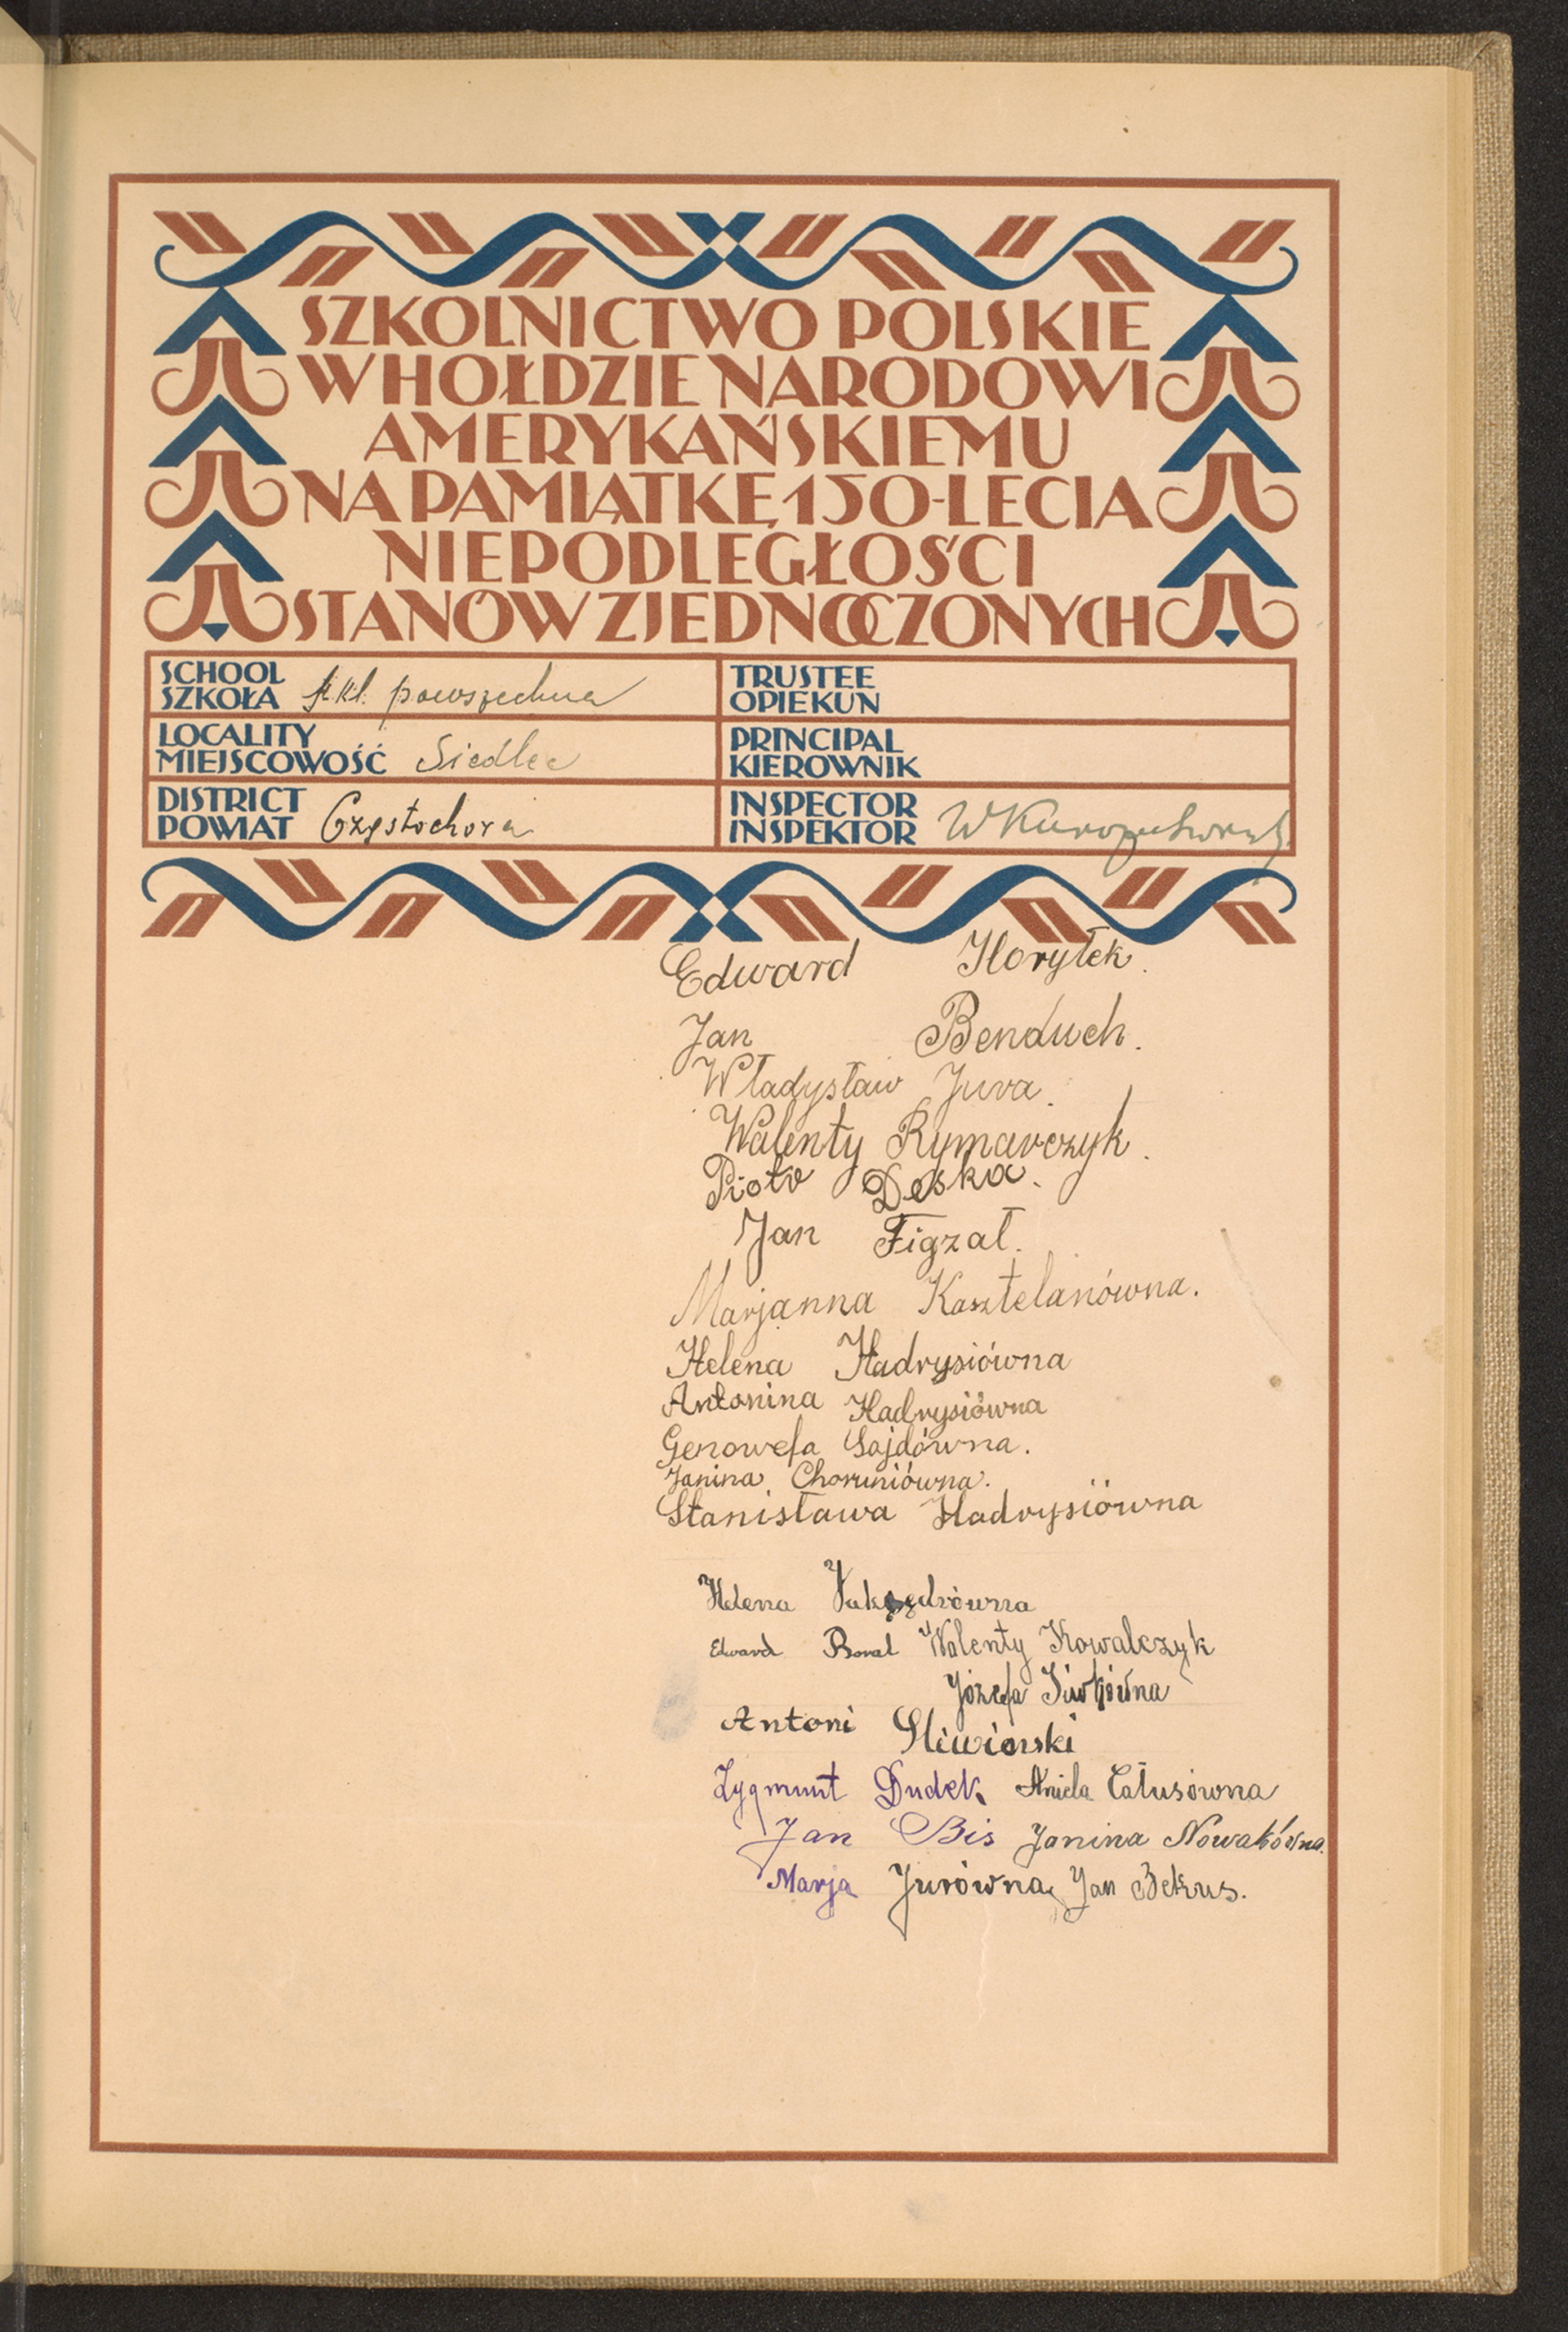 SZKOLNICTWO POLSKIE
W HOŁDZIE NARODOWI
AMERYKAŃSKIEMU
NA PAMIĄTKĘ 150-LECIA
NIEPODLEGŁOŚCI
STANÓW ZJEDNOCZONYCH
SCHOOL
SZKOŁA kl. powszechna
TRUSTEE
OPIEKUN
LOCALITY
MIEJSCOWOŚĆ Siedlec
PRINCIPAL
KIEROWNIK
DISTRICT
POWIAT Częstochowa
INSPECTOR
INSPEKTOR
Edward Horyłek.
Jan Benduch.
Władysław Jura.
Walenty Rymarczyk.
Piotr Deska.
Jan Figzał.
Marjanna Kasztelanówna.
Helena Hadrysiówna
Antonina Hadrysiówna
Genowefa Sajdówna.
Janina Choruniówna.
Stanisława Hadrysiówna
Helena
Edward Walenty Kowalczyk
Józefa
Antoni Sliwiński
Zygmunt Dudek, Aniela Całusówna
Jan Bis Janina Nowakówna.
Marja Jurówna, Jan Bekus.